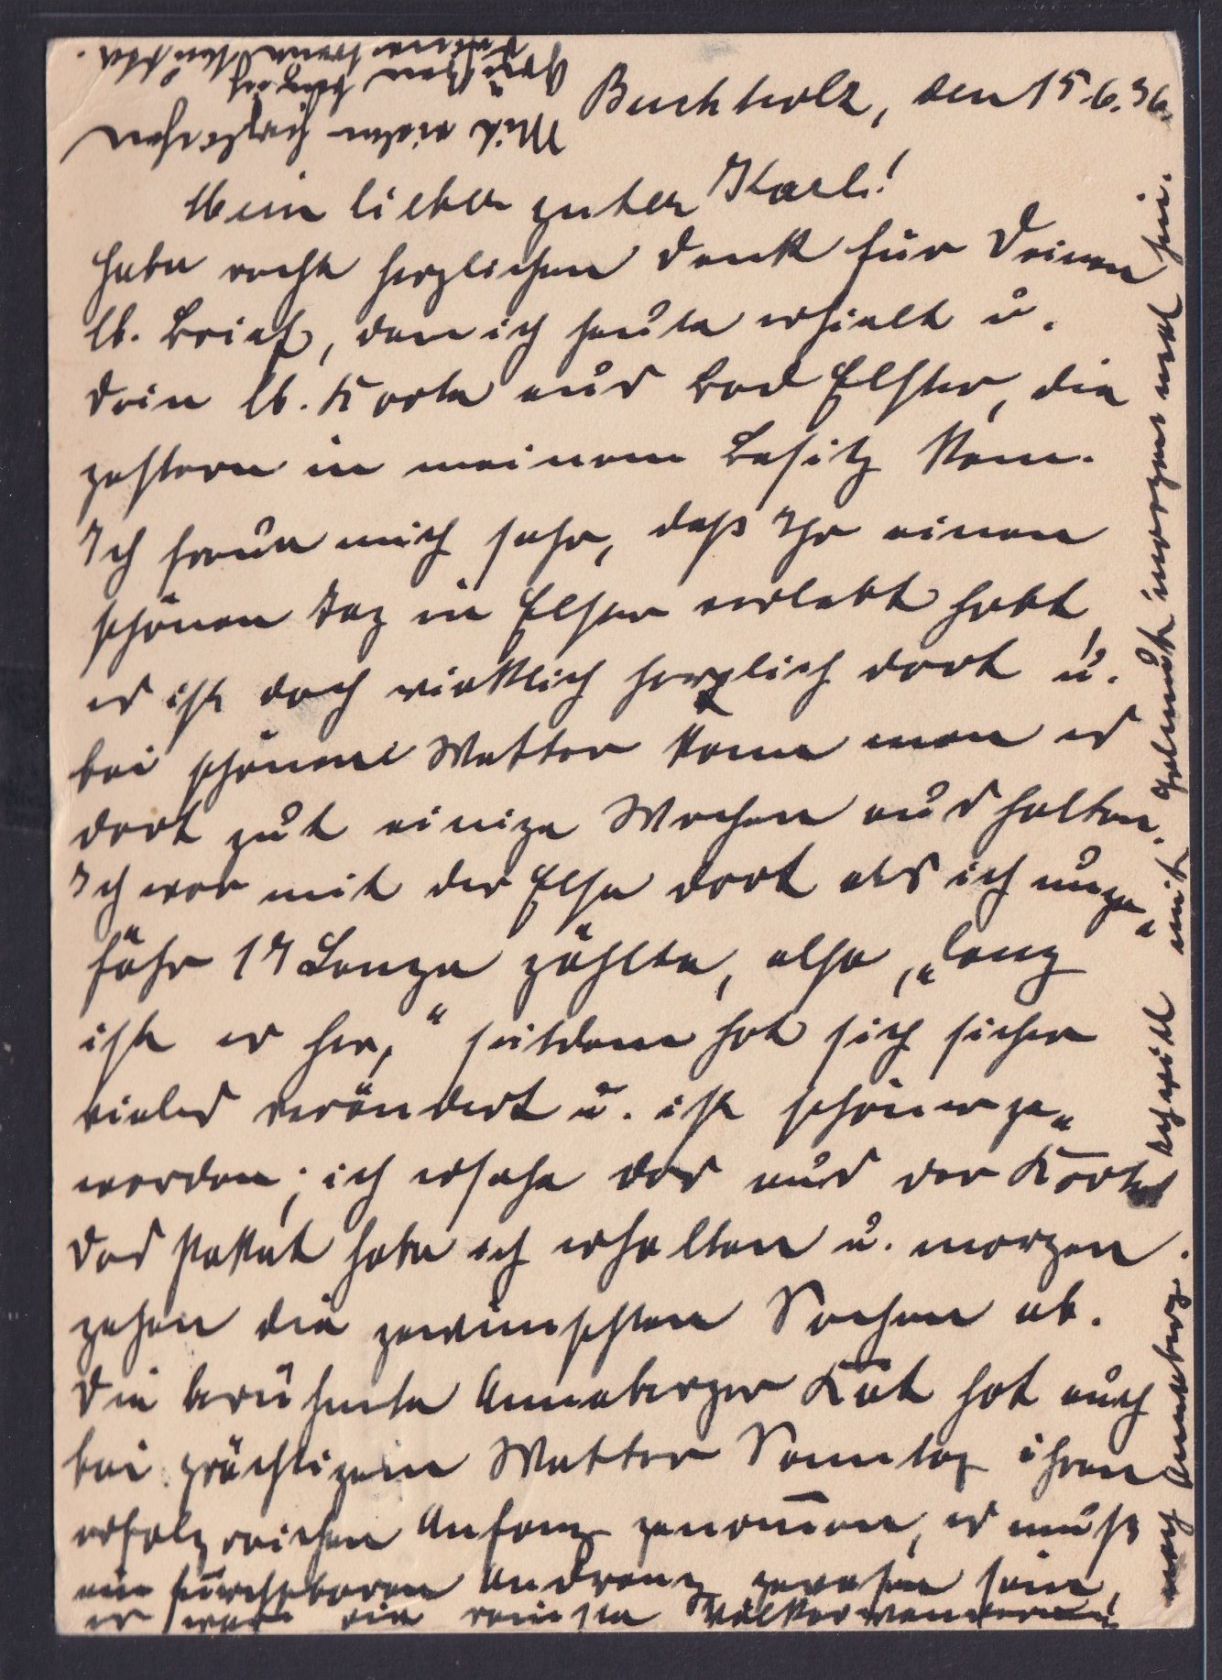 Buchholz, den 15.6.36.
Mein lieber guter Karl!
Habe recht herzlichen Dank für Deinen
lb. Brief, den ich heute erhielt u.
Dein lb. Karte aus Bad Elster, die
gestern in meinem Besitz kam.
Ich freue mich sehr, daß Ihr einen
schönen Tag in Elster verlebt habt,
es ist doch wirklich herzlich dort u.
bei schönem Wetter kann man es
dort gut einige Wochen aushalten.
Ich war mit der Else dort als ich unge„
fähr 17 Lenze zählte, also „lang
ist es her,“ seitdem hat sich sicher
vieles verändert u. ist schöner ge„
worden; ich ersehe das aus der Karte
Das Paket habe ich erhalten u. morgen
gehen die gewünschten Sachen ab.
Die berühmte Annaberger Kät hat auch
bei prächtigem Wetter Sonntag ihren
erfolgreichen Anfang genommen, es muß
ein furchtbaren Andrang gewesen sein,
es war eine reinste Völkerwanderung
nach Annaberg. Ich will mit Helmut morgen mal hin.
Mit vielen herzlichen
Grüßen bin ich
Deine